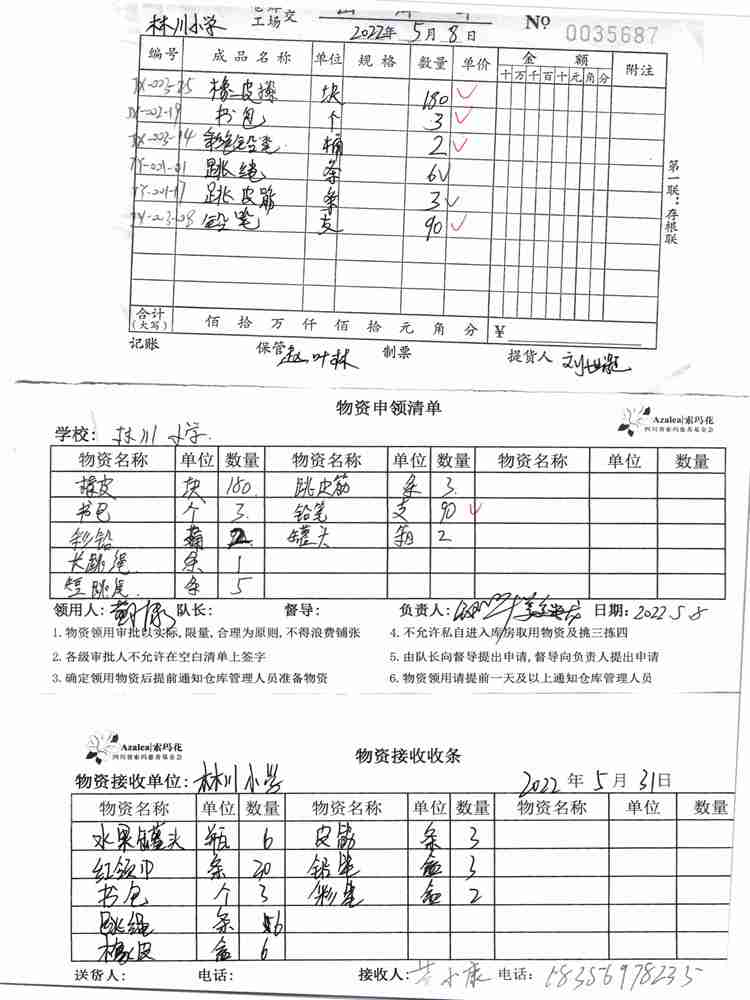 林川小学 工场交
2022年 5月 8日 № 0035687
编号 成品名称 单位 规格 数量 单价 金额 附注
十万千百十元角分
橡皮擦 块 180
书包 个 3
彩色铅笔 桶 2
跳绳 条 6
跳皮筋 条 3
铅笔 支 90
第一联：存根联
合计(大写) 佰 拾 万 仟 佰 拾 元 角 分 ¥
记账 保管 赵叶林 制票 提货人
物资申领清单
Azalea|索玛花
四川省索玛慈善基金会
学校：林川小学
物资名称 单位 数量 物资名称 单位 数量 物资名称 单位 数量
橡皮 块 180. 跳皮筋 条 3.
书包 个 3. 铅笔 支 90
彩铅 桶 2. 罐头 箱 2
长跳绳 条 1
短跳绳 条 5
领用人： 队长： 督导： 负责人： 日期：2022.5.8
1.物资领用审批以实际，限量，合理为原则，不得浪费铺张 4.不允许私自进入库房取用物资及挑三拣四
2.各级审批人不允许在空白清单上签字 5.由队长向督导提出申请，督导向负责人提出申请
3.确定领用物资后提前通知仓库管理人员准备物资 6.物资领用请提前一天及以上通知仓库管理人员
Azalea|索玛花
四川省索玛慈善基金会
物资接收收条
物资接收单位：林川小学 2022年 5月 31日
物资名称 单位 数量 物资名称 单位 数量 物资名称 单位 数量
水果罐头 瓶 6 皮筋 条 3
红领巾 条 20 铅笔 盒 3
书包 个 3 彩笔 盒 2
跳绳 条 6
橡皮 盒 6
送货人： 电话： 接收人： 电话：18356978235